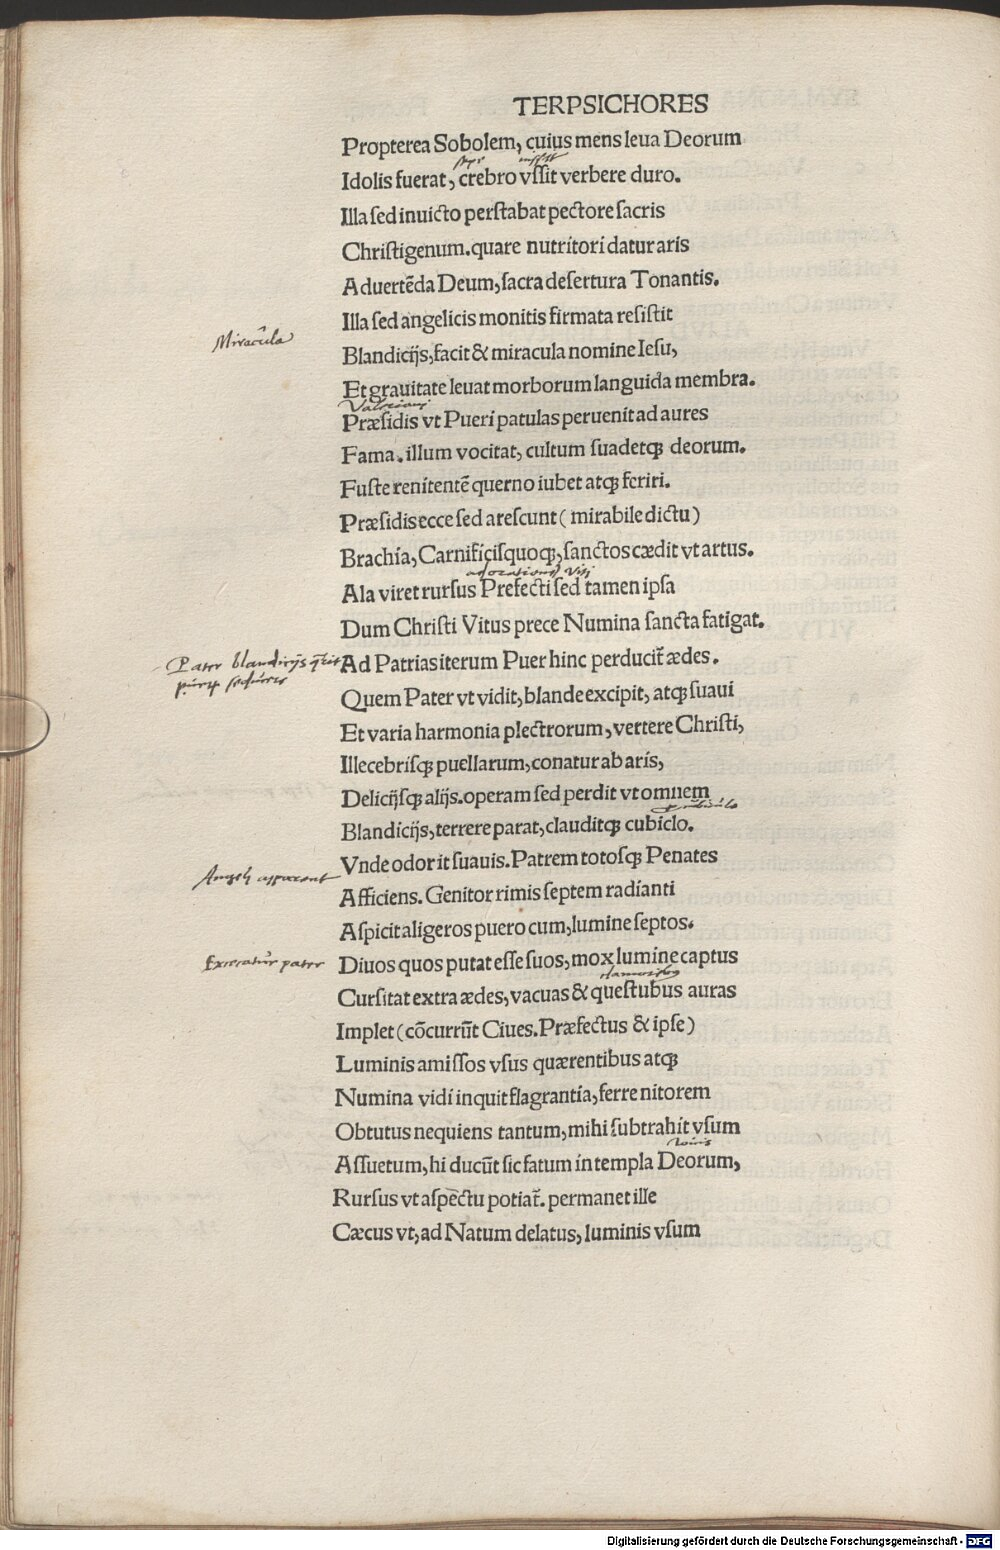 TERPSICHORES
Propterea Sobolem, cuius mens leua Deorum
sepe iussit
Idolis fuerat, crebro vssit verbere duro.
Illa sed inuicto perstabat pectore sacris
Christigenum. quare nutritori datur aris
Aduertẽda Deum, sacra desertura Tonantis.
Illa sed angelicis monitis firmata resistit
Miracula
Blandicijs, facit & miracula nomine Iesu,
Et grauitate leuat morborum languida membra.
Valeriani
Præsidis vt Pueri patulas peruenit ad aures
Fama. illum vocitat, cultum suadetqꝫ deorum.
Fuste renitentẽ querno iubet atqꝫ feriri.
Præsidis ecce sed arescunt (mirabile dictu)
Brachia, Carnificisquoqꝫ, sanctos cædit vt artus.
adoratione Viti
Ala viret rursus Prefecti sed tamen ipsa
Dum Christi Vitus prece Numina sancta fatigat.
Pater blandicijs
Ad Patrias iterum Puer hinc perducit̃ ædes.
Quem Pater vt vidit, blande excipit, atqꝫ suaui
Et varia harmonia plectrorum, vertere Christi,
Illecebrisqꝫ puellarum, conatur ab aris,
Delicijsqꝫ alijs. operam sed perdit vt omnem
Blandicijs, terrere parat, clauditqꝫ cubiclo.
Vnde odor it suauis. Patrem totosqꝫ Penates
Angeli apparent
Afficiens. Genitor rimis septem radianti
Aspicit aligeros puero cum, lumine septos.
Execatur pater
Diuos quos putat esse suos, mox lumine captus
clamoribus
Cursitat extra ædes, vacuas & questubus auras
Implet (cõcurrũt Ciues. Præfectus & ipse)
Luminis amissos vsus quærentibus atqꝫ
Numina vidi inquit flagrantia, ferre nitorem
Obtutus nequiens tantum, mihi subtrahit vsum
Iouis
Assuetum, hi ducũt sic fatum in templa Deorum,
Rursus vt aspectu potiat̃. permanet ille
Cæcus vt, ad Natum delatus, luminis vsum
Digitalisierung gefördert durch die Deutsche Forschungsgemeinschaft - DFG